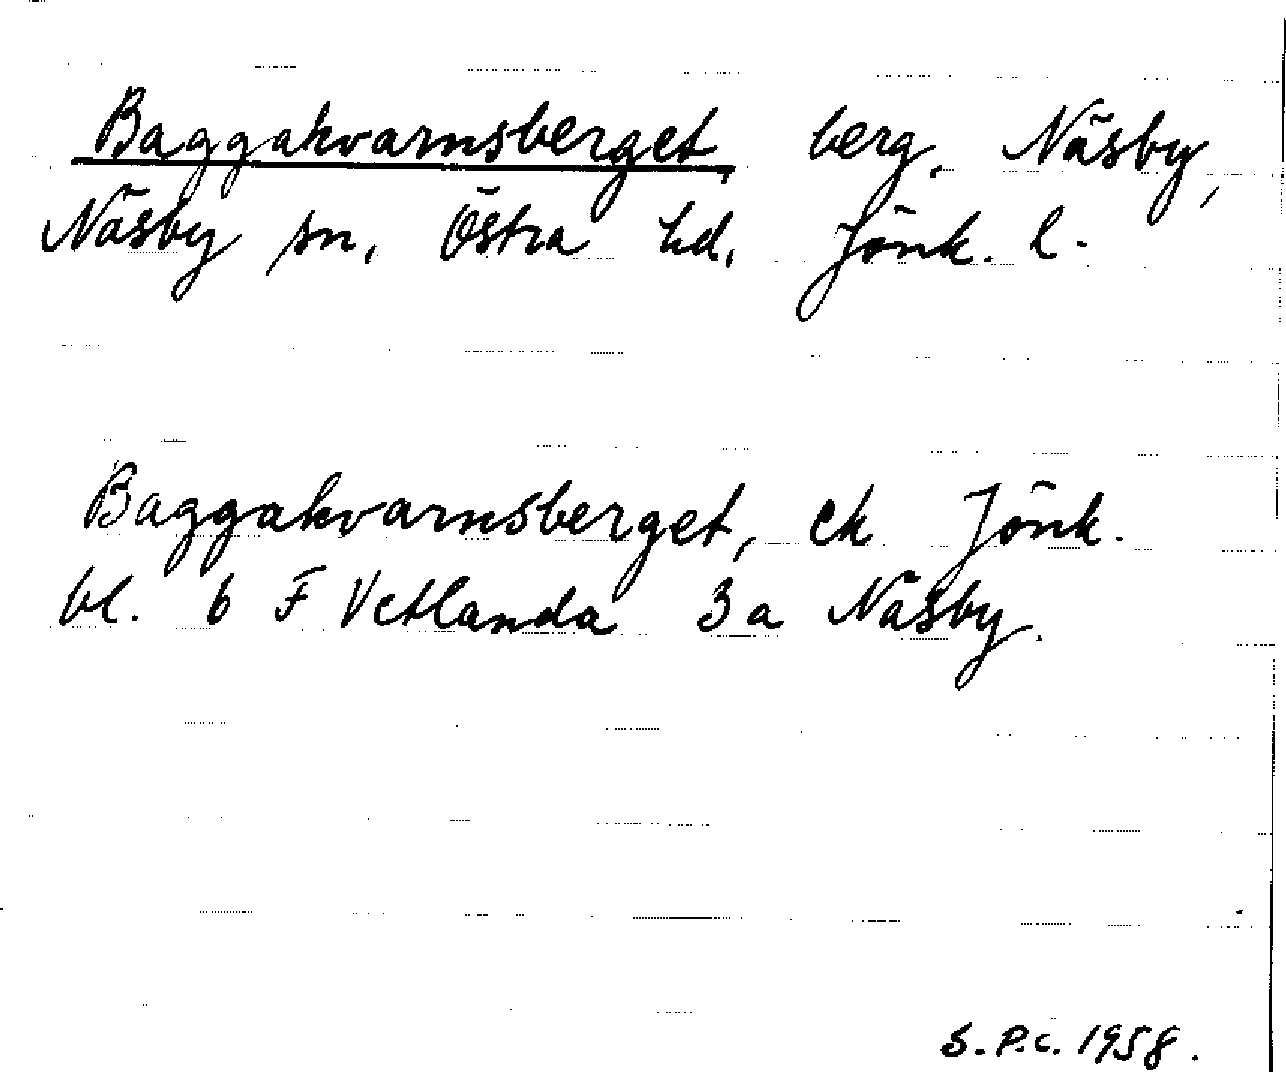 Baggakvarnsberget, berg, Näsby,
Näsby sn, Östra hd, Jönk. l.
Baggakvarnsberget, ek Jönk.
bl. 6 F Vetlanda 3 a Näsby.
S.P.C. 1958.